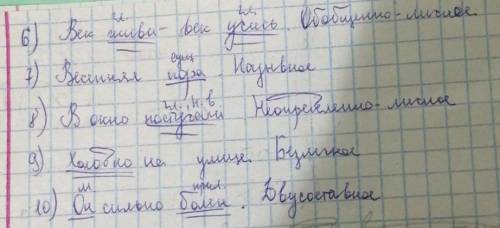 гл. гл.
6) Век живи - век учись. Обобщённо-личное
сущ
7) Весенняя пора. Назывное.
гл., н.в.
8) В окно постучали Неопределенно-личное
9) Холодно на улице. Безличное
м. прил.
10) Он сильно болен. Двусоставное